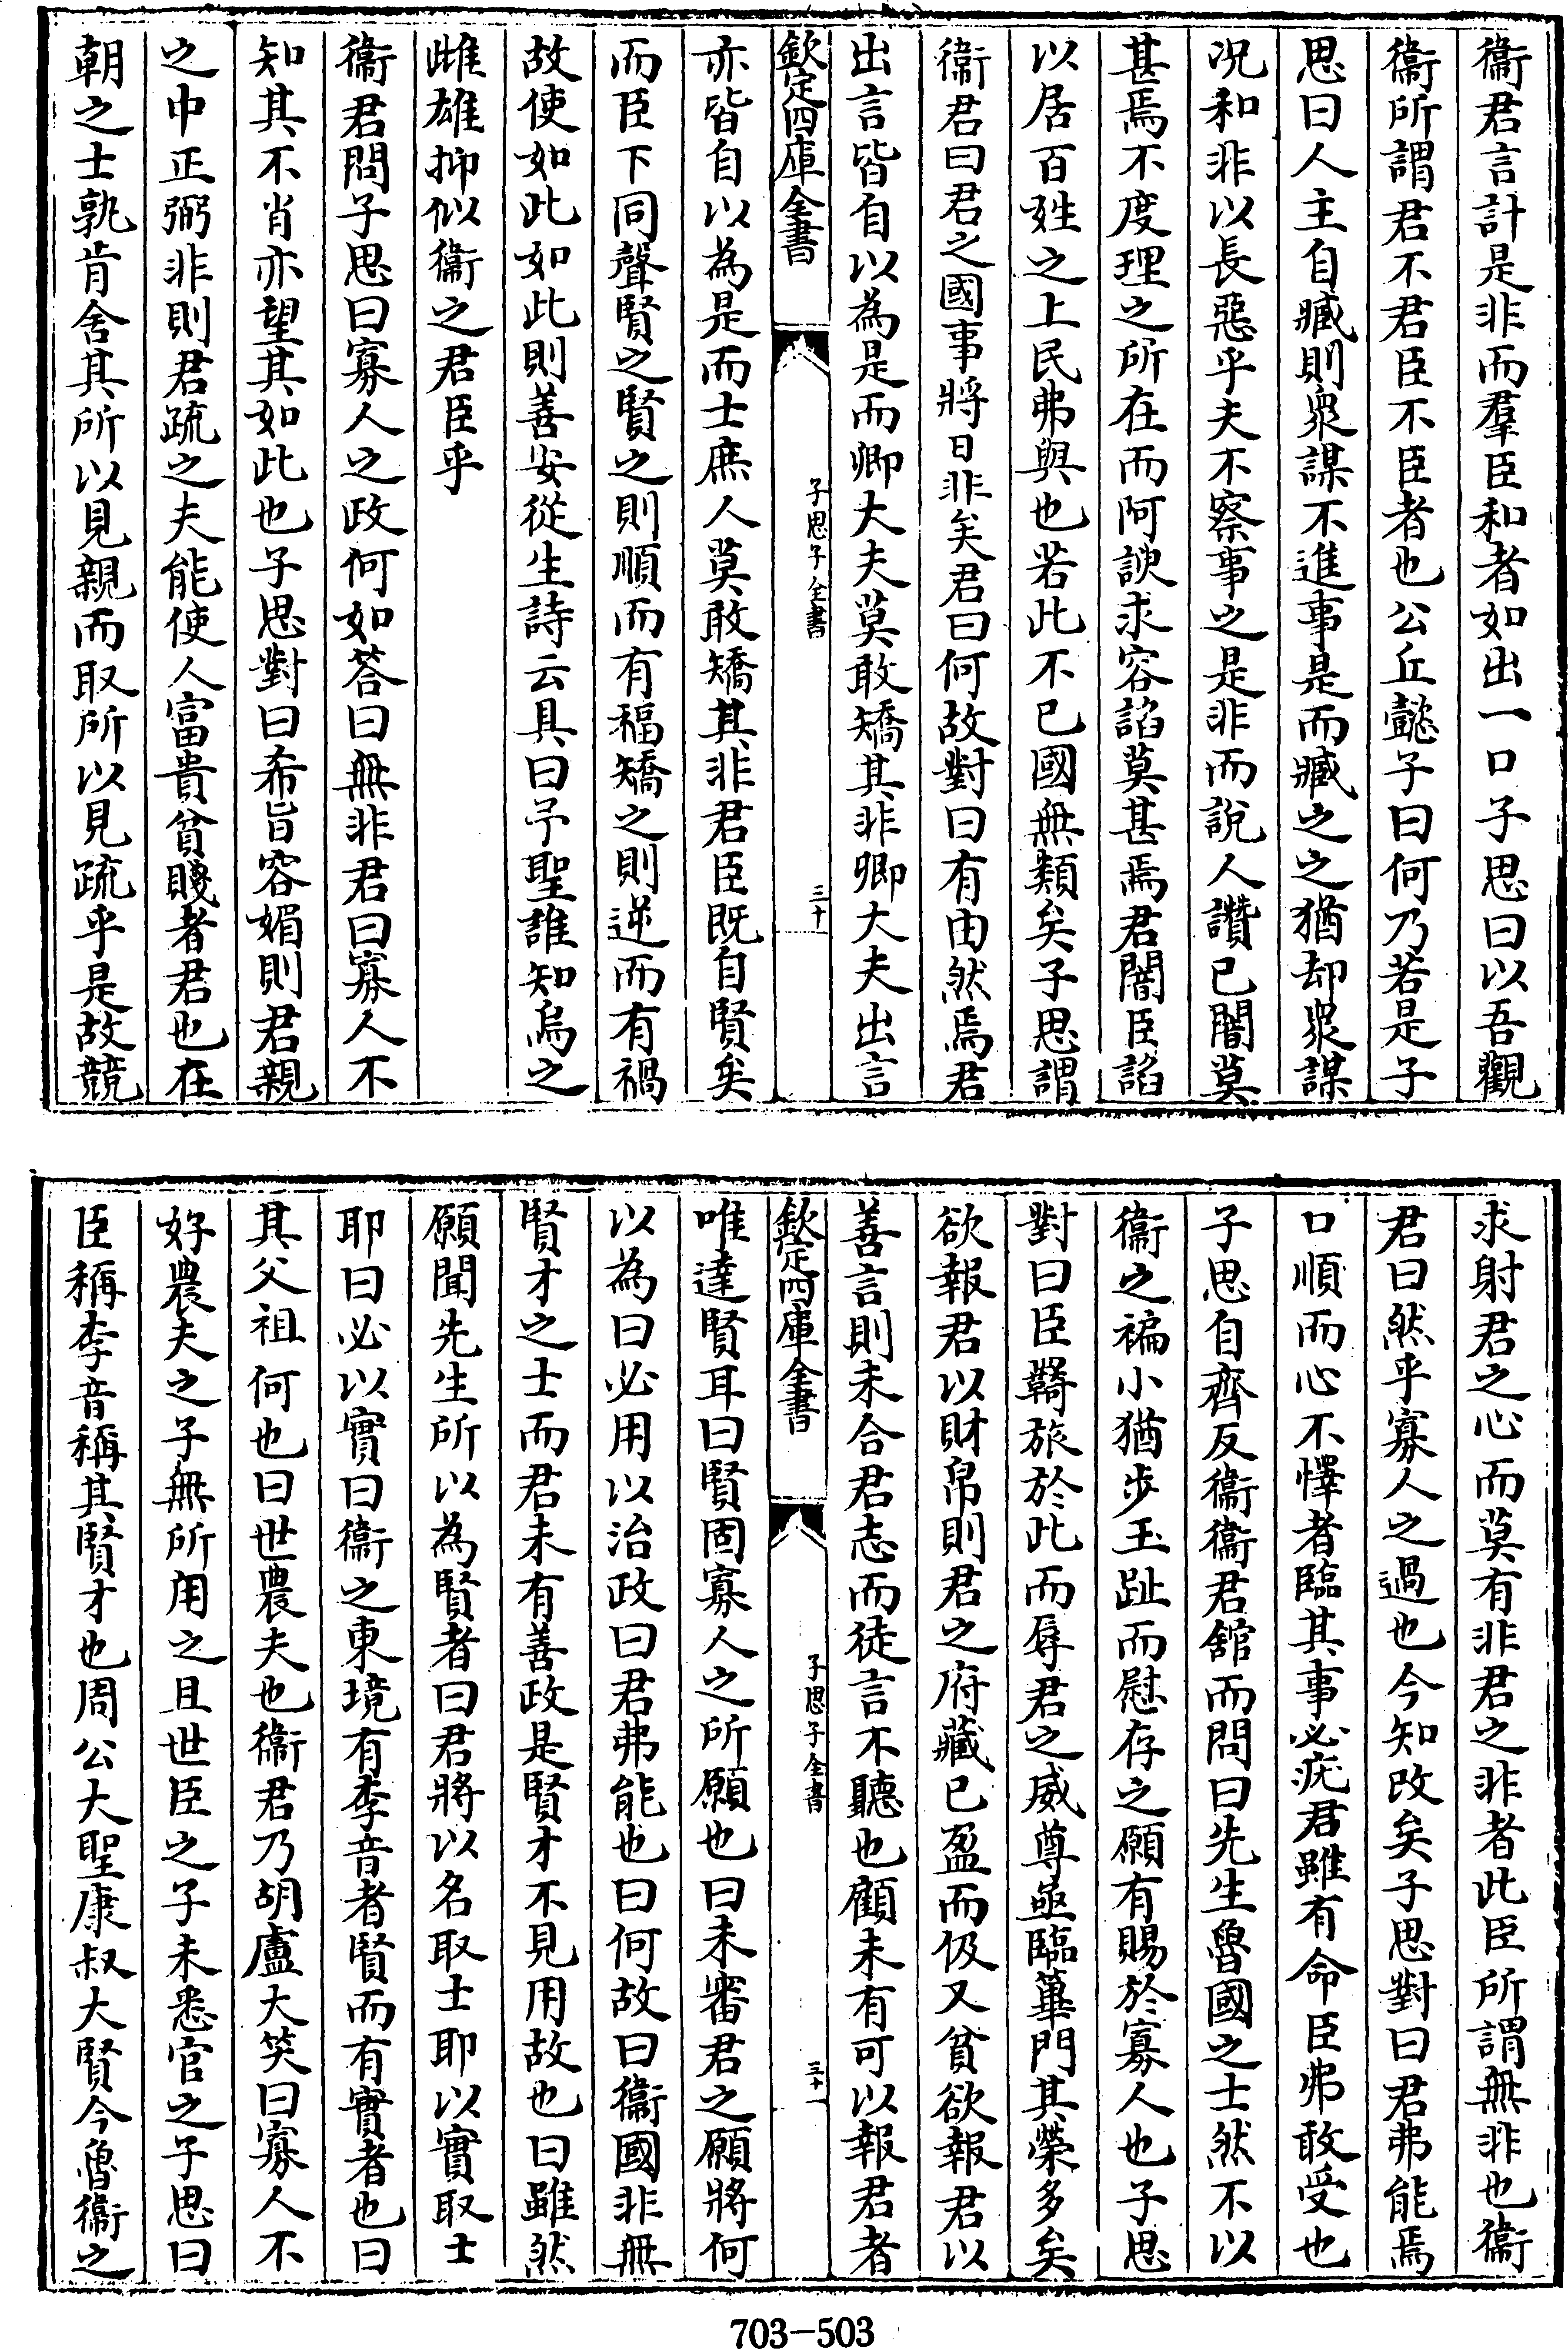 衞君言計是非而羣臣和者如出一口子思曰以吾觀
衞所謂君不君臣不臣者也公丘懿子曰何乃若是子
思曰人主自臧則衆謀不進事是而臧之之猶却衆謀
况和非以長惡乎夫不察事之是非而説人讚已闇莫
甚焉不度理之所在而阿諛求容諂莫甚焉君闇臣諂
以居百姓之上民弗與也若此不已國無類矣子思謂
衞君曰君之國事將日非矣君曰何故對曰有由然焉君
出言皆自以為是而卿大夫莫敢矯其非卿大夫出言
欽定四庫全書
子思子全書
三十
亦皆自以為是而士庶人莫敢矯其非君臣既自賢矣
而臣下同聲賢之賢之則順而有福矯之則逆而有禍
故使如此如此則善安從生詩云具曰予聖誰知烏之
雌雄抑似衞之君臣乎
衞君問子思曰寡人之政何如答曰無非君曰寡人不
知其不肖亦望其如此也子思對曰希旨容媚則君親
之中正弼非則君疏之夫能使人富貴貧賤者君也在
朝之士孰肯舍其所以見親而取所以見疏乎是故競
求射君之心而莫有非君之非者此臣所謂無非也衞
君曰然乎寡人之過也今知改矣子思對曰君弗能焉
口順而心不懌者臨其事必疣君雖有命臣弗敢受也
子思自齊反衞衞君舘而問曰先生魯國之士然不以
衞之褊小猶步玉趾而慰存之願有賜於寡人也子思
對曰臣羇旅於此而辱君之威尊亟臨蓽門其榮多矣
欲報君以財帛則君之府藏已盈而伋又貧欲報君以
善言則未合君志而徒言不聽也顧未有可以報君者
欽定四庫全書
子思子全書
三十一
唯達賢耳曰賢固寡人之所願也曰未審君之願將何
以為曰必用以治政曰君弗能也曰何故曰衞國非無
賢才之士而君未有善政是賢才不見用故也曰雖然
願聞先生所以為賢者曰君將以名取士耶以實取士
耶曰必以實曰衞之東境有李音者賢而有實者也曰
其父祖何也曰世農夫也衞君乃胡盧大笑曰寡人不
好農夫之子無所用之且世臣之子未悉官之子思曰
臣稱李音稱其賢才也周公大聖康叔大賢今魯衞之
703-503